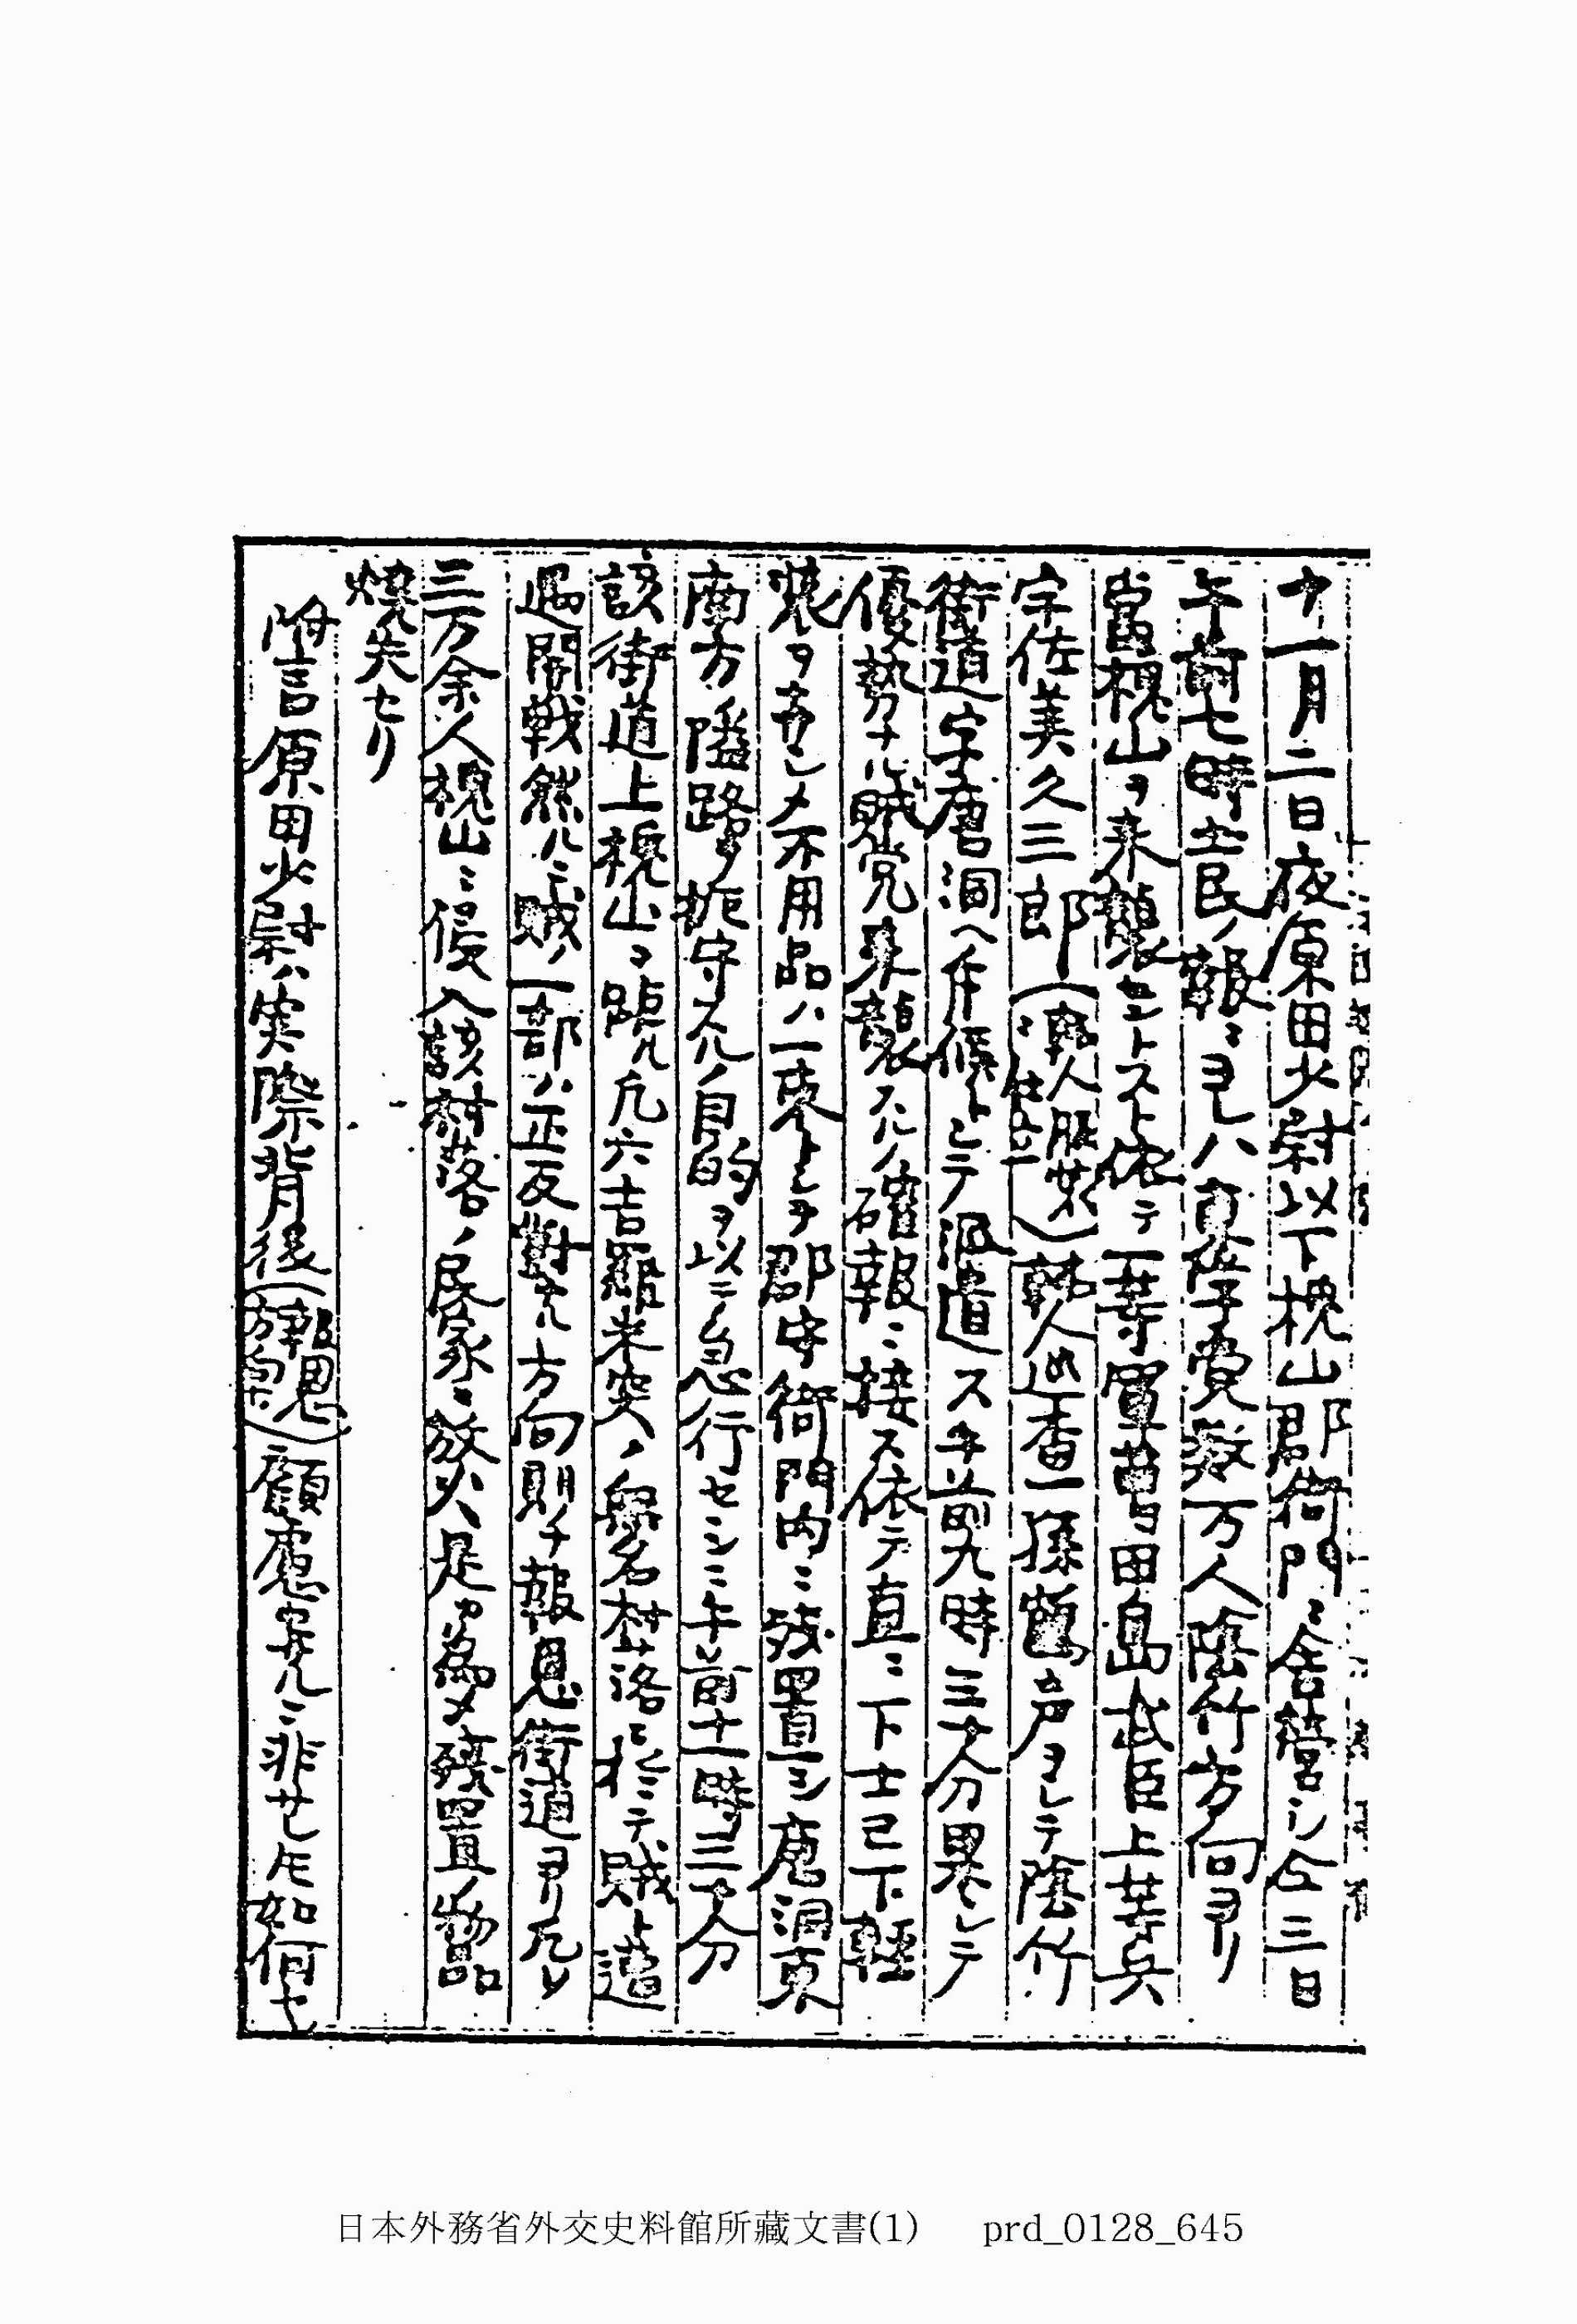 十一月二日夜原田少尉以下槐山郡衙門ニ舎営シ仝三日
午前七時土民ノ報ニヨレハ東学党数万人陰竹方向ヨリ
當槐山ヲ来襲セントスト依テ一等軍曹田島武臣上等兵
宇佐美久三郎(韓人服装ニ),韓人巡査一孫鶴声ヨシテ陰竹
街道字唐洞ヘ斥候トシテ派遣ス午前九時三十分果シテ
優勢ナル賊党来襲スルノ確報ニ接ス依テ直ニ下士已下軽
装ヲナサシメ不用品ハ一束トシテ郡守衙門内ニ残置シ唐洞東
南方ノ隘路ヲ扼守スルノ目的ヲ以テ急行セシニ午前十一時三十分
該街道上槐山ヲ距ル凡六吉羅米突ノ無名村落ニ於テ賊ト遭
遇開戦然ルニ賊ノ一部ハ正反對ナル方向則チ報恩街道ヨリ凡ソ
三万余人槐山ニ侵入該村落ノ民家ニ放火是カ為メ残置物品
焼失セリ
附言原田少尉ハ実際背後(報恩方向)ノ顧慮ナキニ非サレトモ如何セ
日本外務省外交史料館所藏文書(1) prd_0128_645